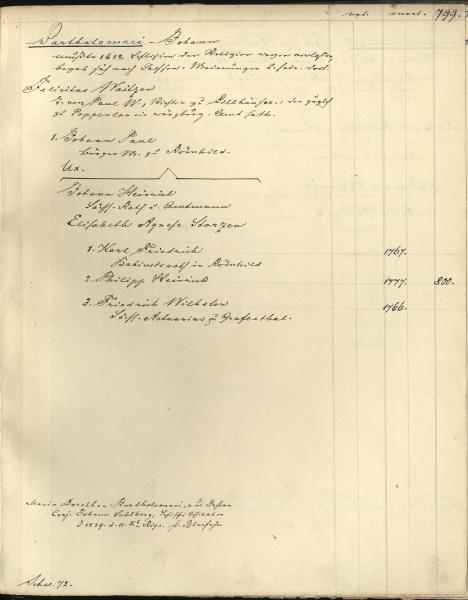 nat. mort. 799.
Bartholomaei - Johann
mußte 1612 Schlesien der Religion wegen verlassen
begab sich nach Sachsen - Meiningen u. starb dort.
Felicitas Waitzen
T. von Paul W., Richter zu
zu in Würzburg. Amt hatte.
1. Johann Paul
Bürger M. zu Römhild.
Ux.
Johann Heinrich
Sächs. Rath u. Amtmann
Elisabeth Agnese Storzen
1. Karl Friedrich 1767.
Kabinetsrath in Römhild
2. Philipp Heinrich 1777. 800.
3. Friedrich Wilhelm 1766.
Sächs. Actuarius zu Grafenthal.
Maria Dorothea Bartholomaei, aus
Conj. Johann Sahlberg,
1739. d. 11. Riga.
72.